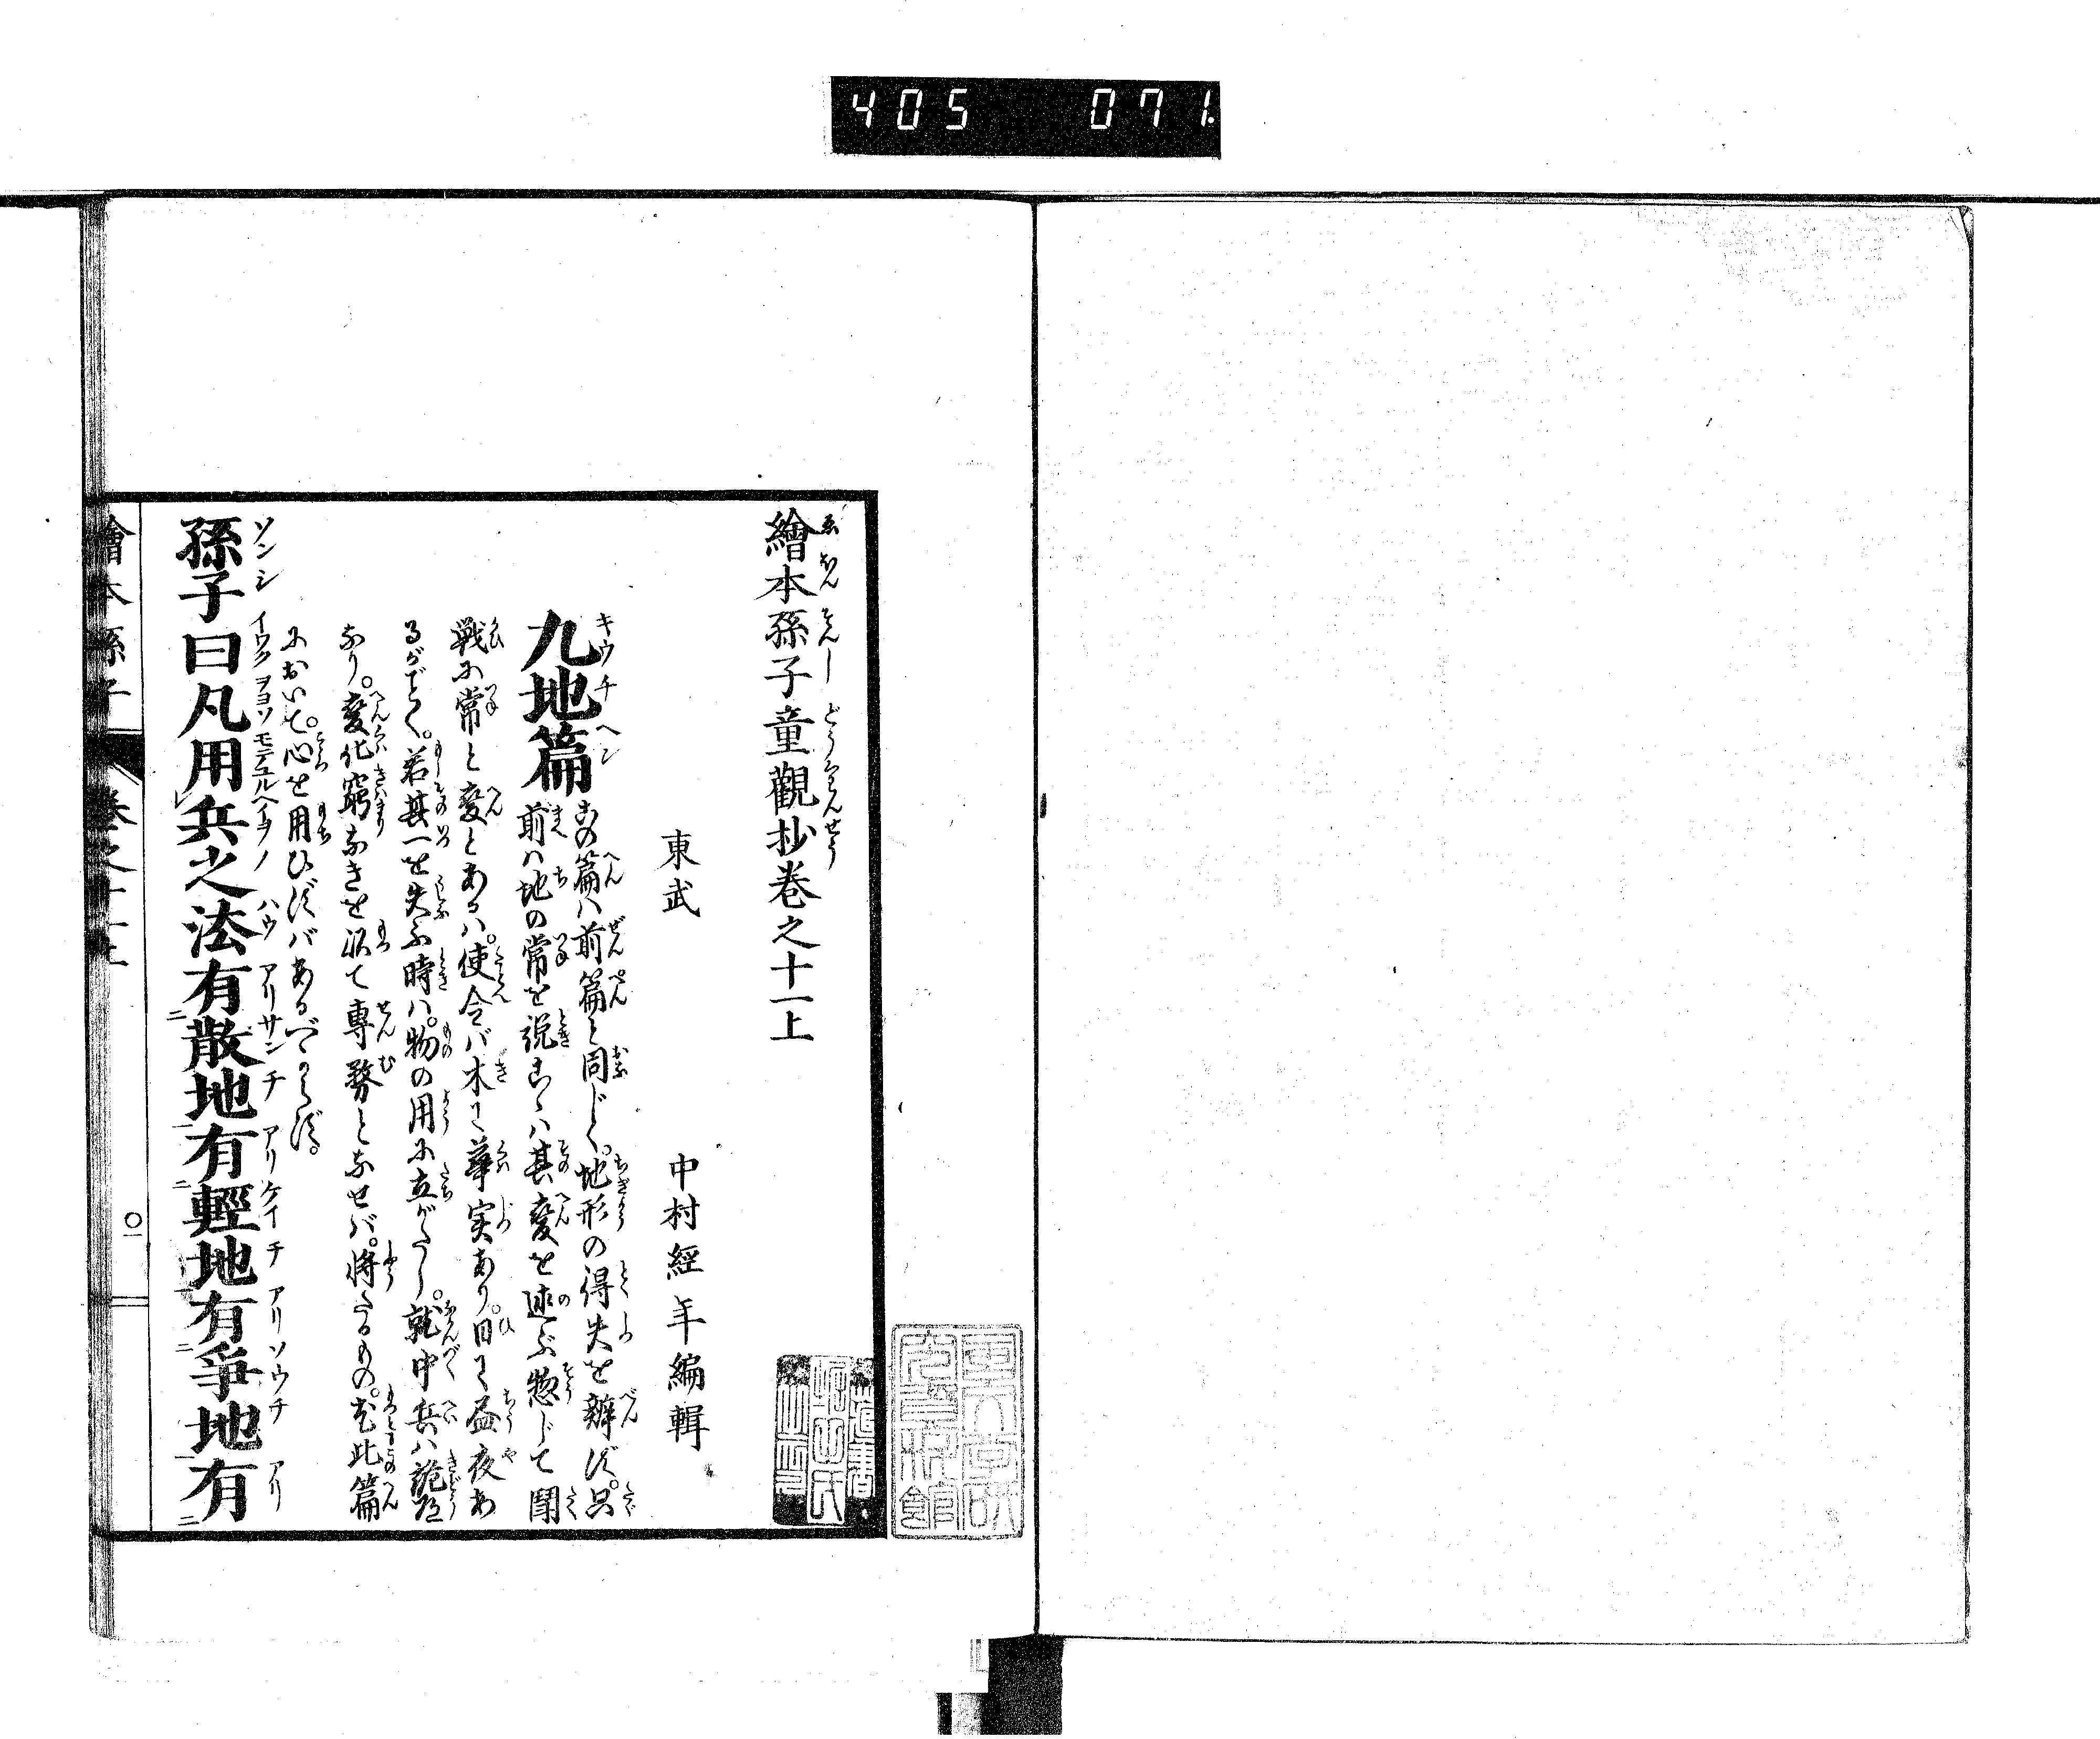 405 071
繪本孫子童觀抄巻之十一上
東武 中村經年編輯
九地篇
この篇ハ前篇と同じく。地形の得失を辧ず。只
前ハ地の常を説こゝハ其變を述ぶ惣じて鬪
戦に常と變とあるハ。使令バ木に華実あり。日に昼夜あ
るがごとく。若其一を失ふ時ハ。物の用に立がたし。就中兵ハ詭道
なり。變化窮なきを以て專務となせバ。将たるもの。尤此篇
において。心を用ひずバあるべからず。
孫子曰凡用兵之法有散地有輕地有爭地有
繪本孫子 巻之十一上 〇一